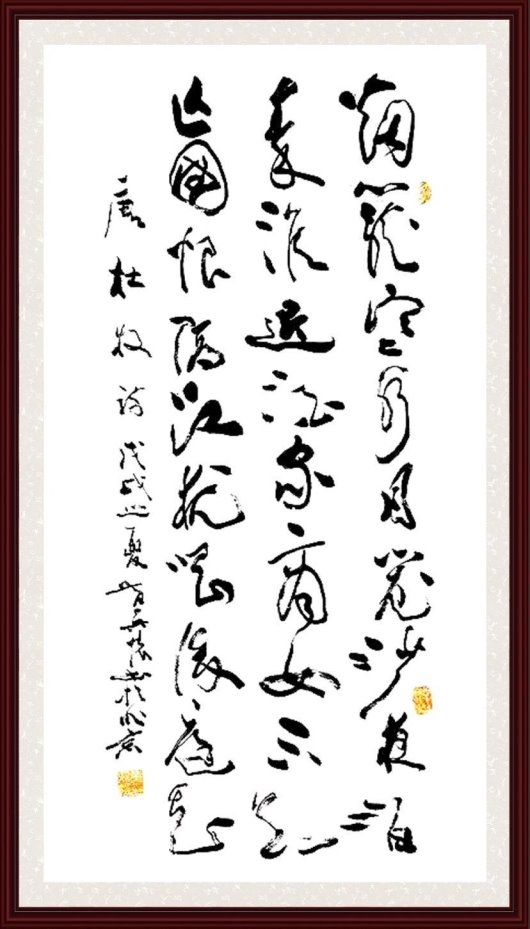 烟籠寒水月籠沙夜泊
秦淮近酒家商女不知
亡國恨隔江犹唱後庭花
唐杜牧诗戊戌之夏书於北京